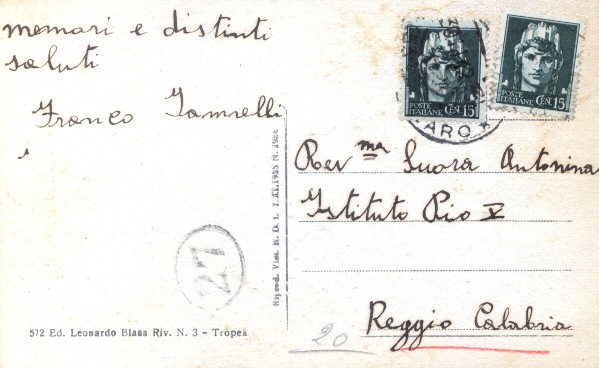 memori e distinti
saluti
Franco
POSTE
ITALIANE CEN. 15
POSTE
ITALIANE CEN. 15
ARO
Rev ma Suora Antonina
Istituto Pio X
Reggio Calabria
27
20
572 Ed. Leonardo Blasa Riv. N. 3 - Tropea
Riprod. Viet. R. D. L. 7.XI.1925 N.